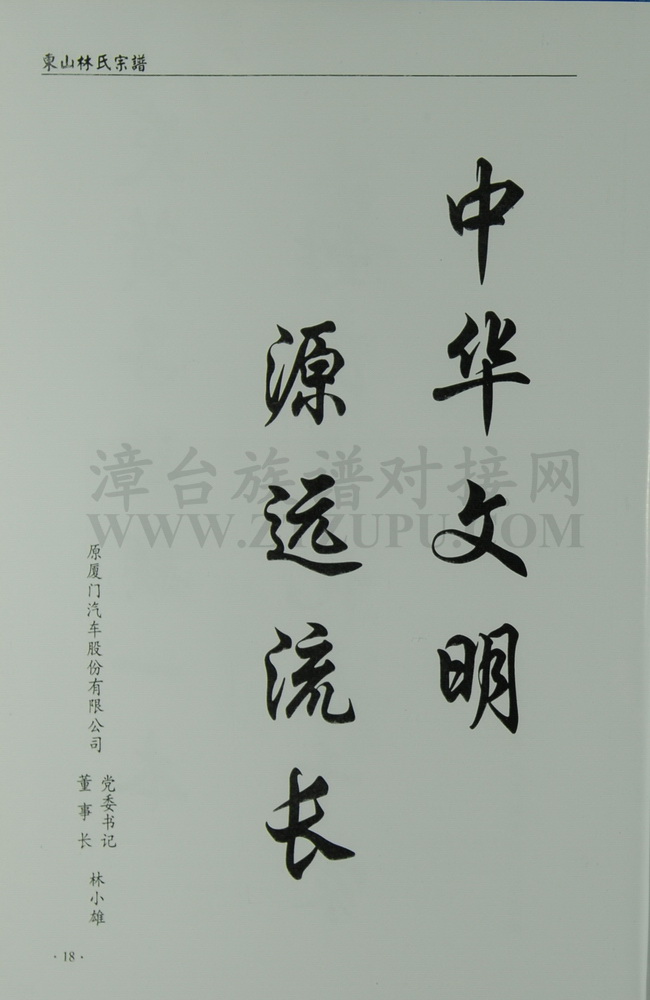 東山林氏宗譜
中华文明
源远流长
原厦门汽车股份有限公司
党委书记
董事长
林小雄
漳台族谱对接网
WWW.ZTZUPU.COM
·18·